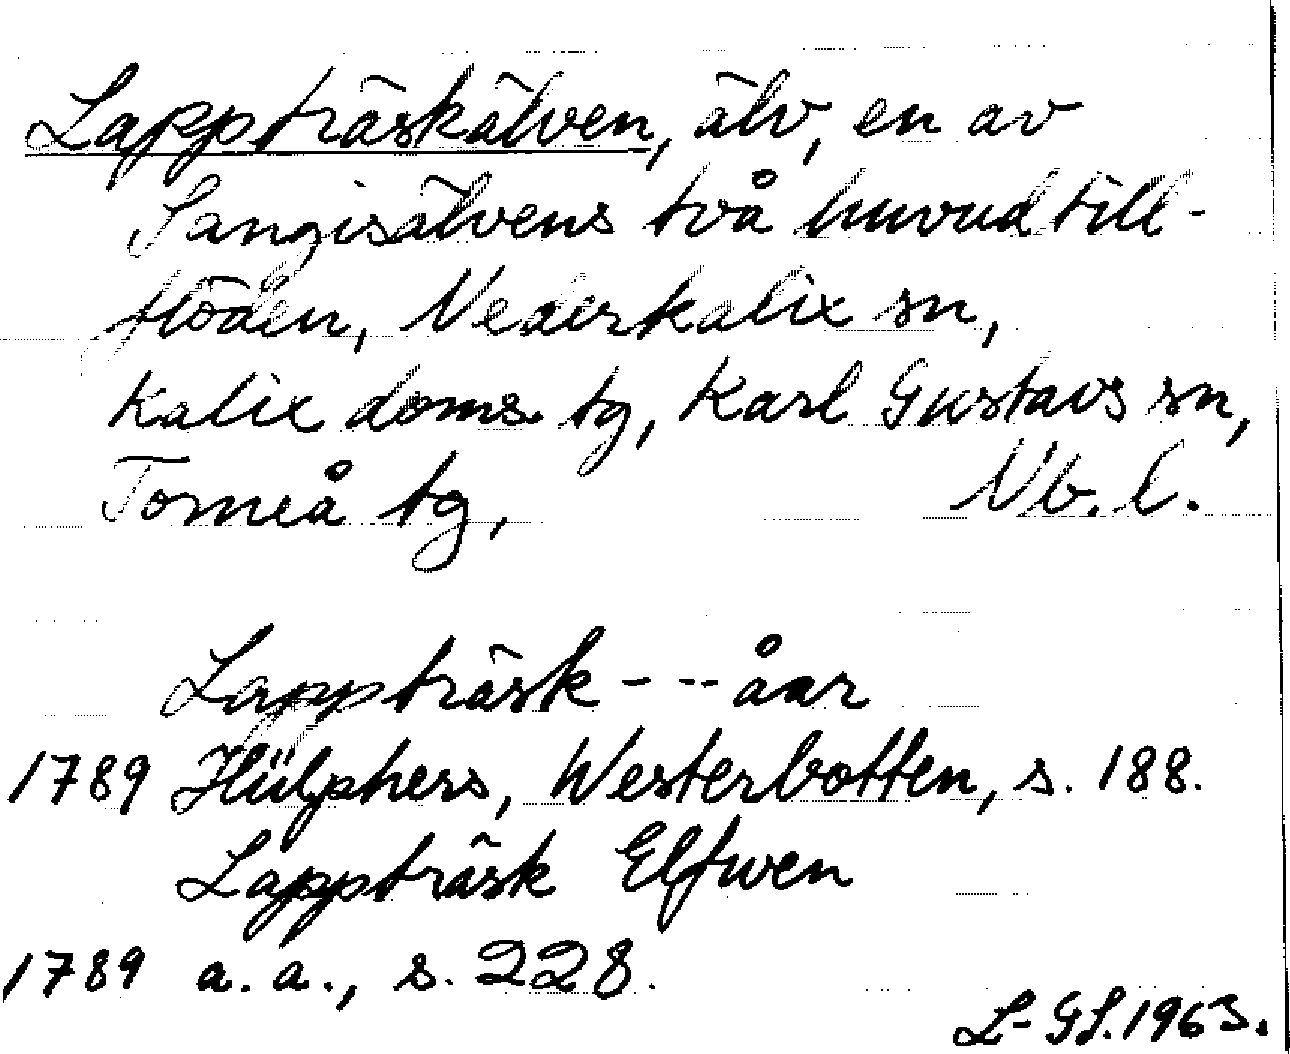 Lappträskälven, älv, en av
Sangisälvens två huvudtill-
flöden, Nederkalix sn,
Kalix doms. tg, Karl Gustavs sn,
Torneå tg, Nb. l.
Lappträsk - -- åar
1789 Hülphers, Westerbotten, s. 188.
Lappträsk Elfwen
1789 a. a., s. 228.
L-GL. 1963.